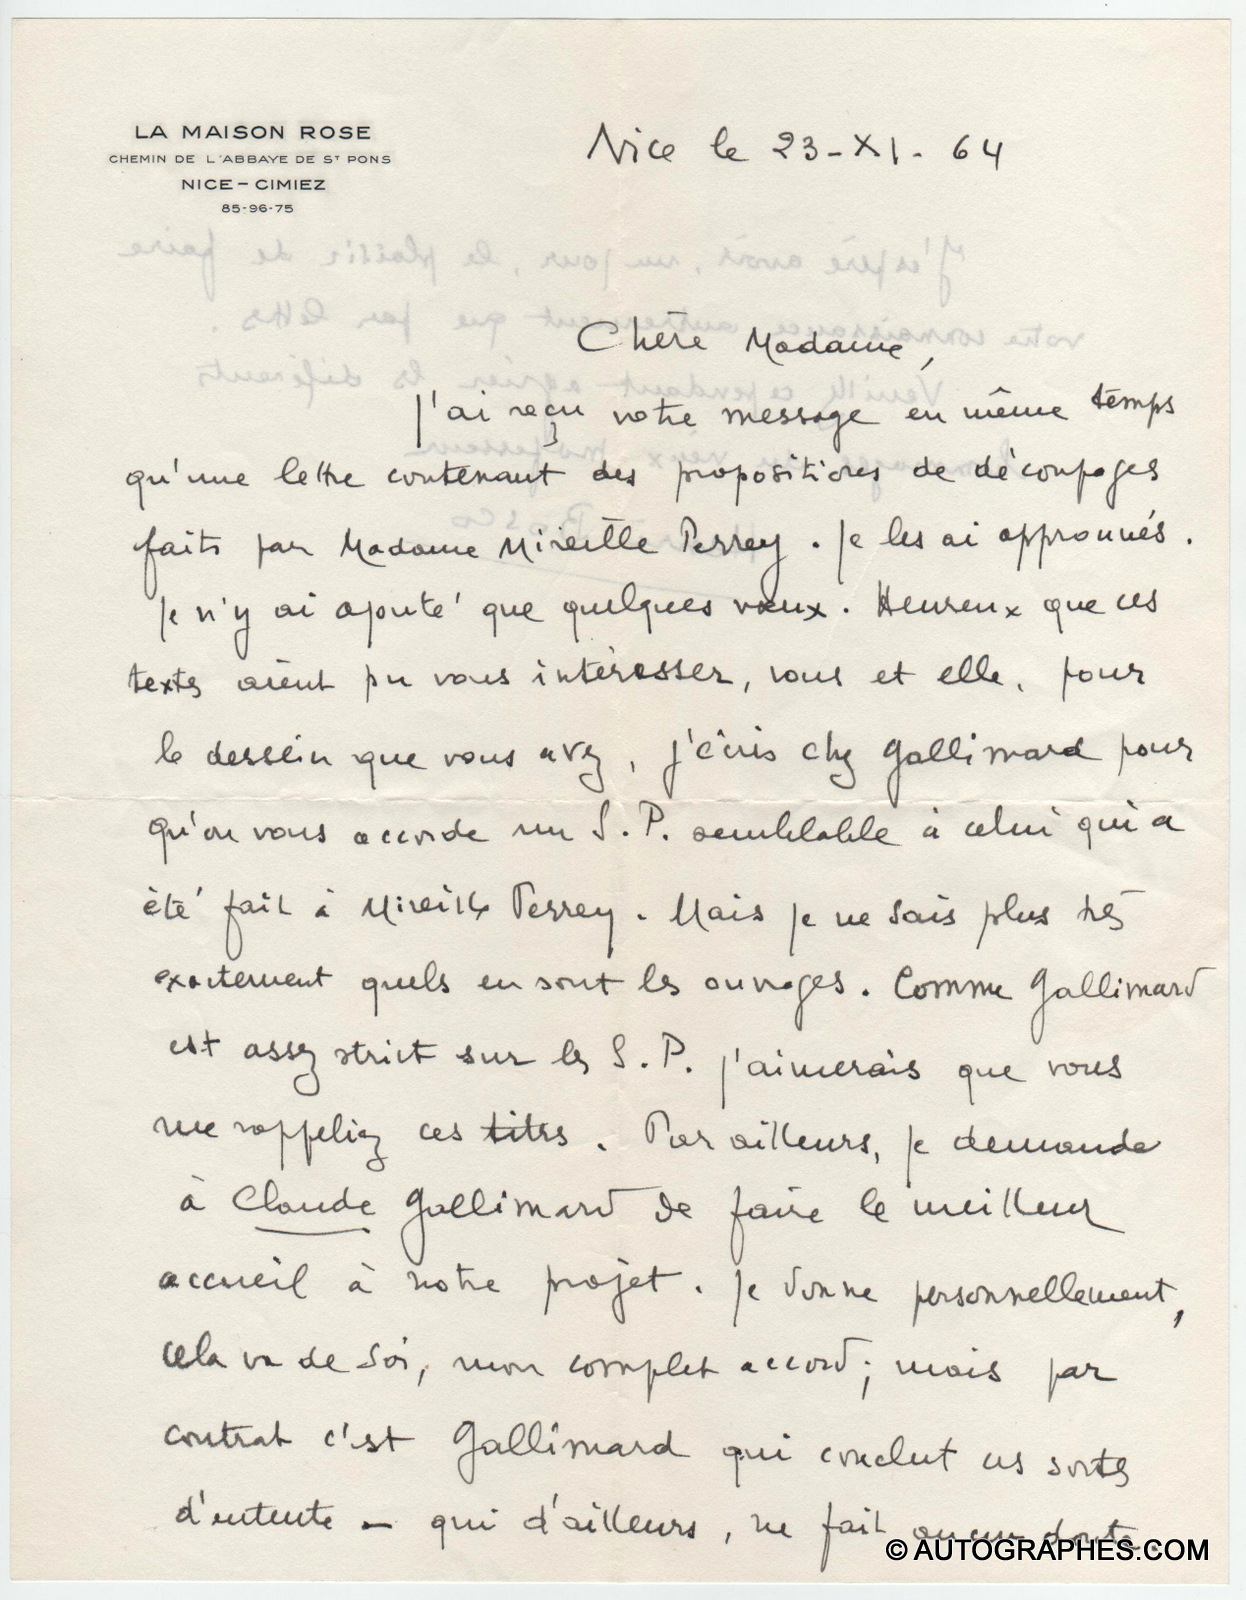 LA MAISON ROSE
CHEMIN DE L'ABBAYE DE ST PONS
NICE - CIMIEZ
85-96-75
Nice le 23-XI-64
Chère Madame,
J'ai reçu votre message en même temps
qu'une lettre contenant des propositions de découpages
faits par Madame Mireille Perrey. Je les ai approuvés.
Je n'y ai ajouté que quelques vœux. Heureux que ces
textes aient pu vous intéresser, vous et elle, pour
le dessein que vous avez, j'écris chez Gallimard pour
qu'on vous accorde un S.P. semblable à celui qui a
été fait à Mireille Perrey. Mais je ne sais plus très
exactement quels en sont les ouvrages. Comme Gallimard
est assez strict sur les S.P. j'aimerais que vous
me rappeliez ces titres. Par ailleurs, je demande
à Claude Gallimard de faire le meilleur
accueil à notre projet. Je donne personnellement,
cela va de soi, mon complet accord; mais par
contrat c'est Gallimard qui conclut ces sortes
d'entente — qui d'ailleurs, ne fait aucun doute.
J'espère avoir, un jour, le plaisir de faire
votre connaissance autrement que par lettre.
Veuillez cependant agréer les déférents
professeur
Bosco
© AUTOGRAPHES.COM